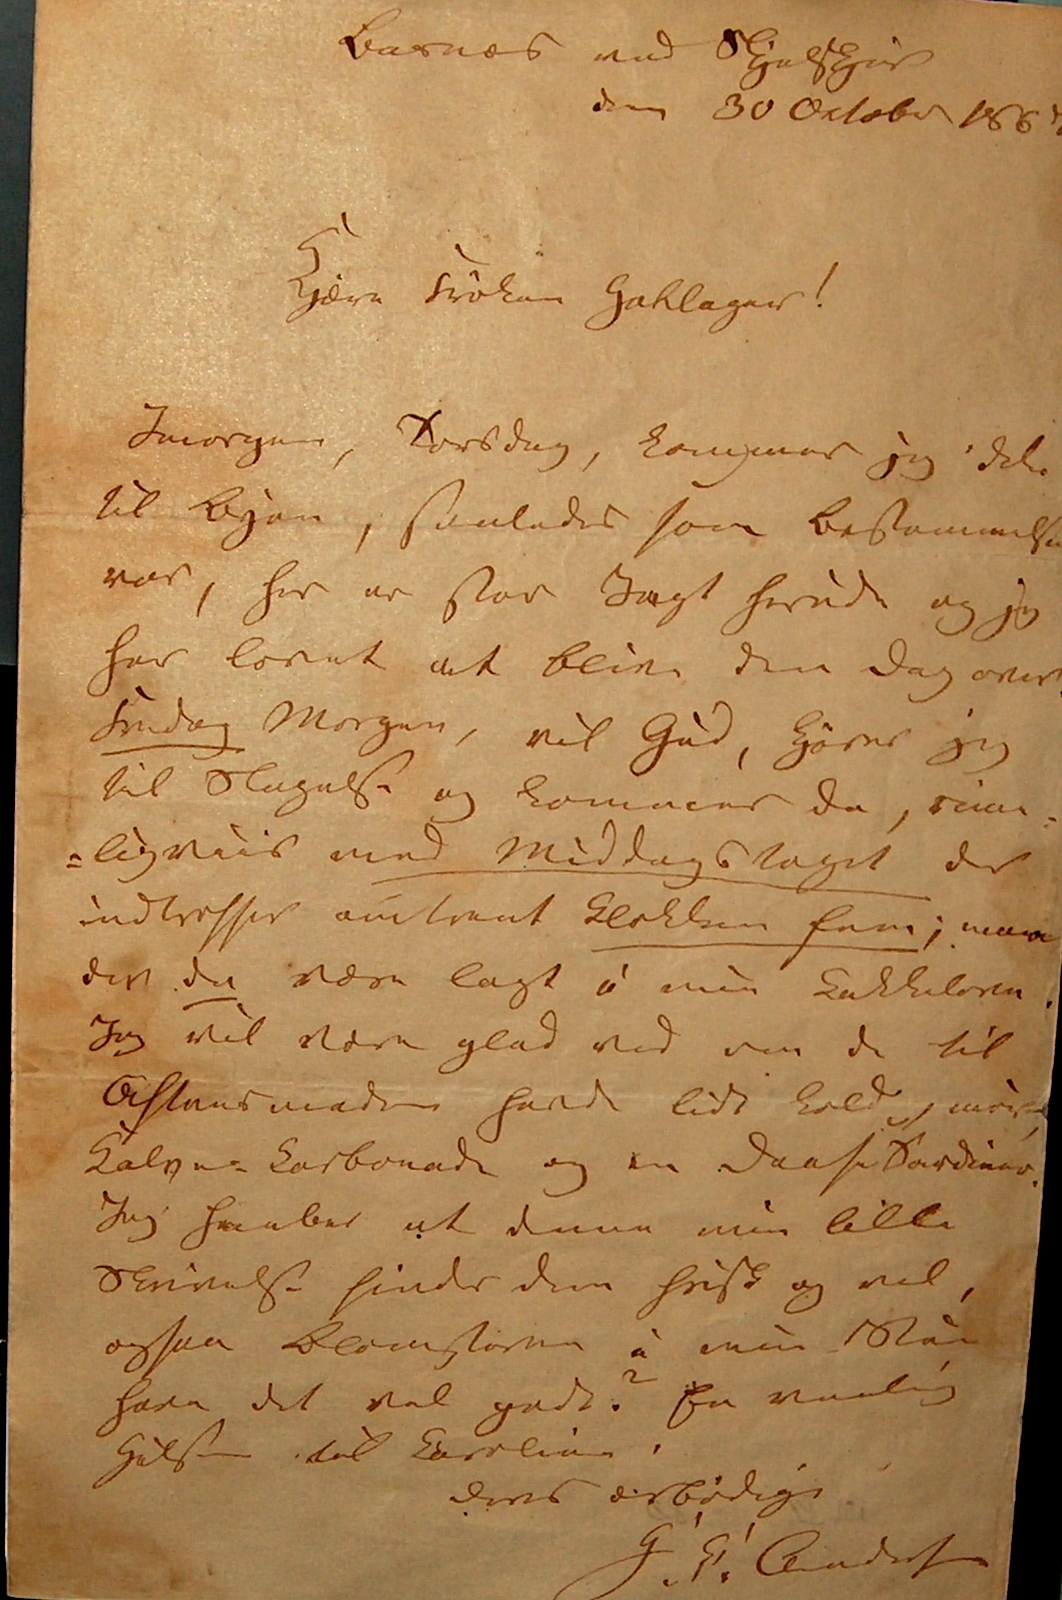 Basnæs ved Skjelskjør
den 30 October 186
Kjære Frøken Hallager!
Imorgen, Torsdag, kommer jeg ikke
til Byen, saaledes som bestemmelsen
var, her er stor Jagt herude og jeg
har lovet at blive den Dag over.
Fredag Morgen, vil Gud, kjører jeg
til Slagelse og kommer da, rime-
=ligviis med Middagstoget der
indtræffer omtrent Klokken fem;
der da være lagt i min Kakkelovn.
Jeg vil være glad ved om De til
Aftensmaden havde lidt kold, mør
Kalve-Karbonade og en Daase Sardiner.
Jeg haaber at denne min lille
Skrivelse finder Dem frisk og vel,
ogsaa Blomsterne i min Stue
have det vel godt? En venlig
Hilsen til Karoline.
Deres ærbødige
H. C. Andersen